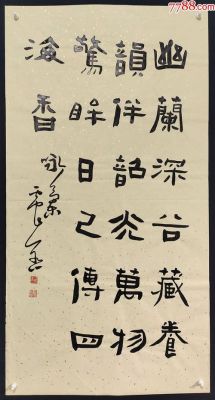 幽蘭深谷藏養
韻伴韶光萬物
驚眸日已傳四
海香
咏蘭
7788.com